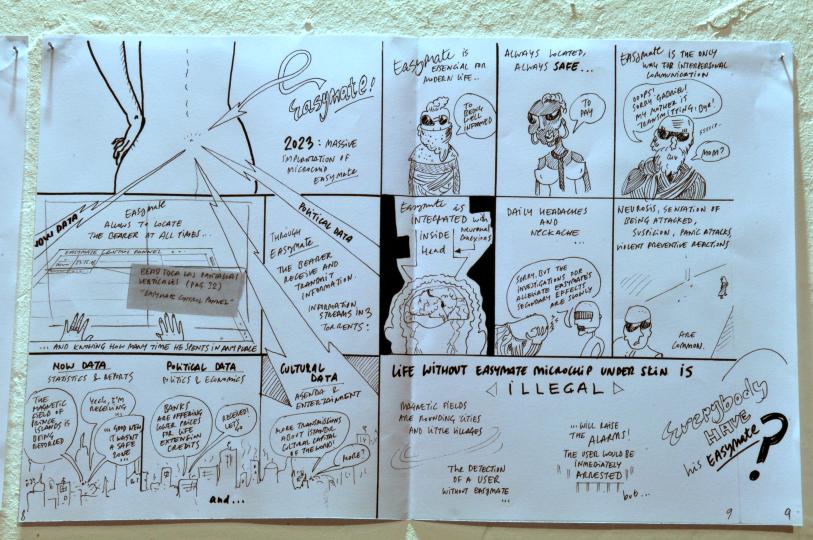 Easymate!
2023: MASSIVE
IMPLANTATION OF
MICROCHIP
EASYMATE
Easymate is
ESENCIAL FOR
MODERN LIFE..
TO
BEING
WELL
INFORMED
ALWAYS LOCATED,
ALWAYS SAFE...
TO
PAY
EASYMATE IS THE ONLY
WAY FOR INTERPERSONAL
COMMUNICATION
OOOPS!
SORRY GABRIEL!
MY MOTHER IS
TRANSMITTING, BYE!
MOM?
NOW DATA
Easymate
ALLOWS TO LOCATE
THE BEARER AT ALL TIMES...
EASYMATE CONTROL PANNEL
VERTICALES (PAG 32)
"EASYMATE CONTROL PANNEL"
... AND KNOWING HOW MANY TIME HE SPENTS IN ANY PLACE
POLITICAL DATA
THROUGH
EASYMATE
THE BEARER
RECEIVE AND
TRANSMIT
INFORMATION.
INFORMATION
STREAMS IN 3
TORRENTS:
Easymate is
INTEGRATED with
INSIDE Neuronal
Head
DAILY HEADACHES
AND
NECKACHE
...
SORRY, BUT THE
INVESTIGATIONS FOR
ALLEVIATE EASYMATE'S
SECONDARY EFFECTS
ARE SLOWLY
NEUROSIS, SENSATION OF
BEING ATTACKED,
SUSPICION, PANIC ATTACKS,
VIOLENT PREVENTIVE REACTIONS
ARE
COMMON.
NOW DATA
STATISTICS & REPORTS
THE
MAGNETIC
FIELD OF
PRINCE
ISLANDS IS
BEING
REFORCED
Yeah, i'm
RECEIVING
... GOOD NEWS
IT WASN'T
A SAFE
ZONE...
POLITICAL DATA
POLITICS & ECONOMICS
BANKS
ARE OFFERING
LOWER PRICES
FOR LIFE
EXTENSION
CREDITS
RECEIVED!
LET'S
GO
CULTURAL
DATA
AGENDA &
ENTERTAINMENT
MORE TRANSMISSIONS
ABOUT ISTANBUL
CULTURAL CAPITAL
OF THE WORLD!
MORE?
and...
LIFE WITHOUT EASYMATE MICROCHIP UNDER SKIN IS
ILLEGAL
MAGNETIC FIELDS
ARE ROUNDING CITIES
AND LITTLE VILLAGES
THE DETECTION
OF A USER
WITHOUT EASYMATE
...
... WILL RAISE
THE ALARMS!
THE USER WOULD BE
INMEDIATELY
ARRESTED
but...
Everybody
HAVE
his EASYMATE
?
8
9
9